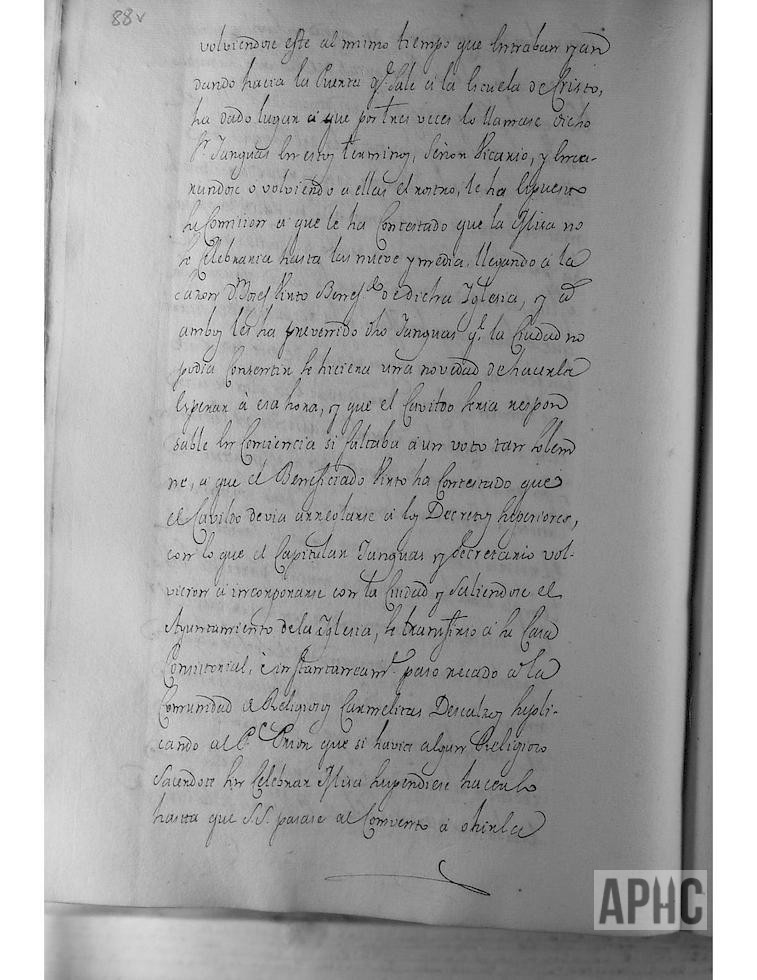 88v
volviendose este al mismo tiempo que entraban y an
dando hacia la Puerta qe. sale a la Escuela de Cristo,
ha dado lugar a que por tres veces lo llamase dicho
Sr. Tanguas en estos terminos, Señor Vicario, y
o volviendo a ellas el rostro, le ha expuesto
su Comision a que le ha Contestado que la Misa no
se Celebraria hasta las nueve y media, llegando a la
D. Josef Pinto Benefdo. de dicha Iglesia, y a
ambos les ha prevenido dho Tanguas qe. la Ciudad no
podia Consentir se hiciera una novedad de hacerla
esperar à esa hora, y que el Cavildo seria respon
sable en Conciencia si faltaba a un voto tan solem
ne, a que el Beneficiado Pinto ha Contestado que
el Cavildo devia arreglarse a los Decretos Superiores,
con lo que el Capitular Tanguas y Secretario vol-
vieron a incorporarse con la Ciudad y saliendose el
Ayuntamiento de la Iglesia, se transfirio a su Casa
Consistorial, è instantaneamte. paso recado a la
Comunidad de Religiosos Carmelitas Descalzos supli-
cando al Pe. Prior que si havia algun Religioso
Sacerdote sin Celebrar Misa suspendiese hacerlo
hasta que S.S. pasase al Convento a ohirla
APHC